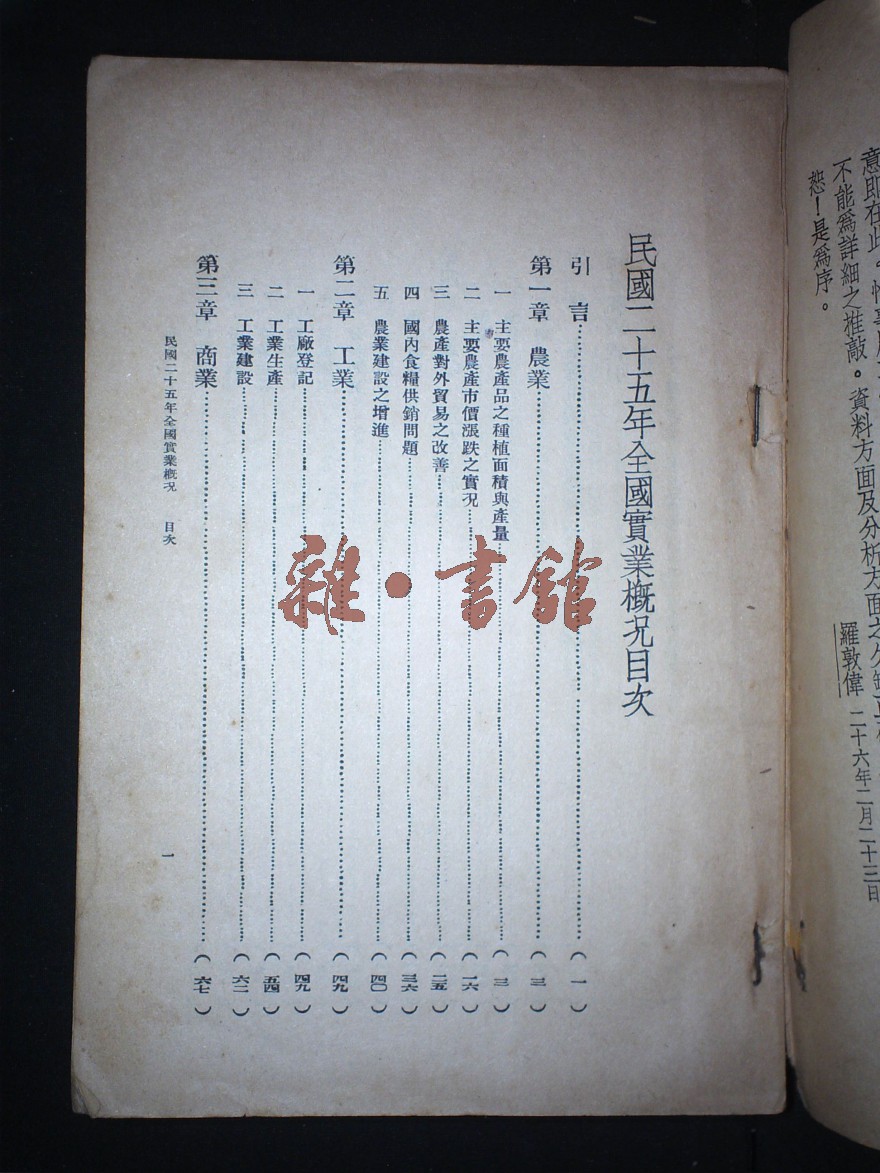 意即在此。
不能爲詳細之推敲。資料方面及分析方面之欠缺
恕！是爲序。
羅敦偉 二十六年二月二十三日
民國二十五年全國實業概況目次
引言……（一）
第一章 農業……（三）
一 主要農產品之種植面積與產量……（三）
二 主要農產市價漲跌之實況……（一六）
三 農產對外貿易之改善……（二五）
四 國內食糧供銷問題……（三六）
五 農業建設之增進……（四〇）
第二章 工業……（四九）
一 工廠登記……（四九）
二 工業生產……（五四）
三 工業建設……（六二）
第三章 商業……（六七）
民國二十五年全國實業概況 目次
一
雜·書館